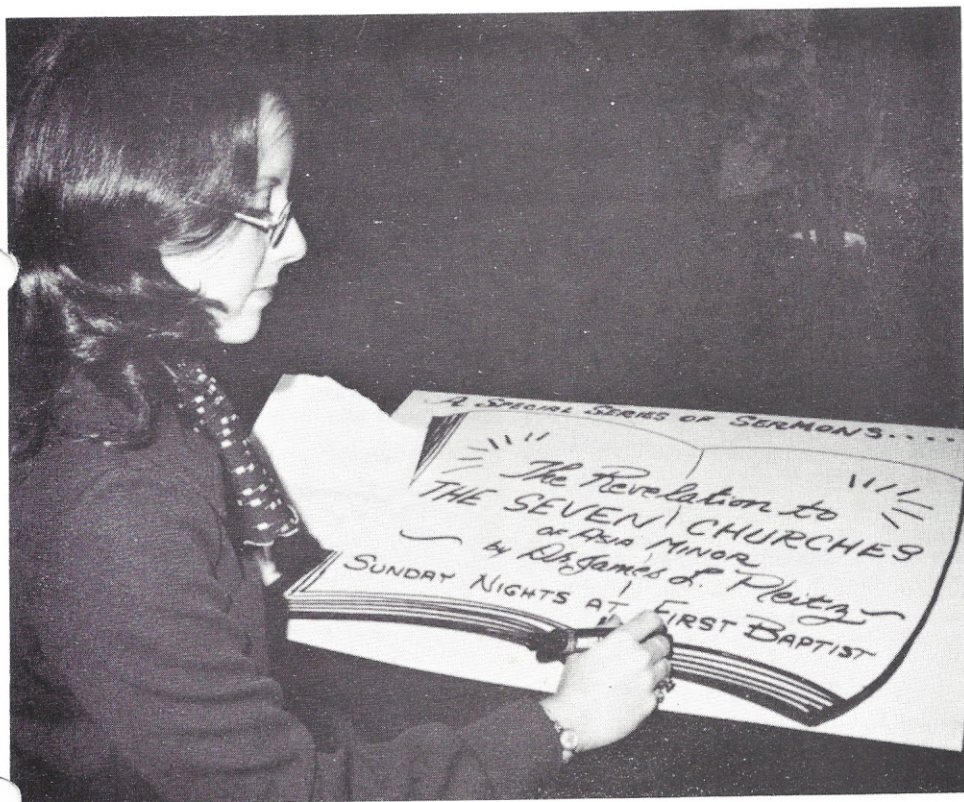 A SPECIAL SERIES OF SERMONS....
The Revelation to
THE SEVEN CHURCHES
OF ASIA MINOR
by Dr. James L. Pleitz
SUNDAY NIGHTS AT FIRST BAPTIST